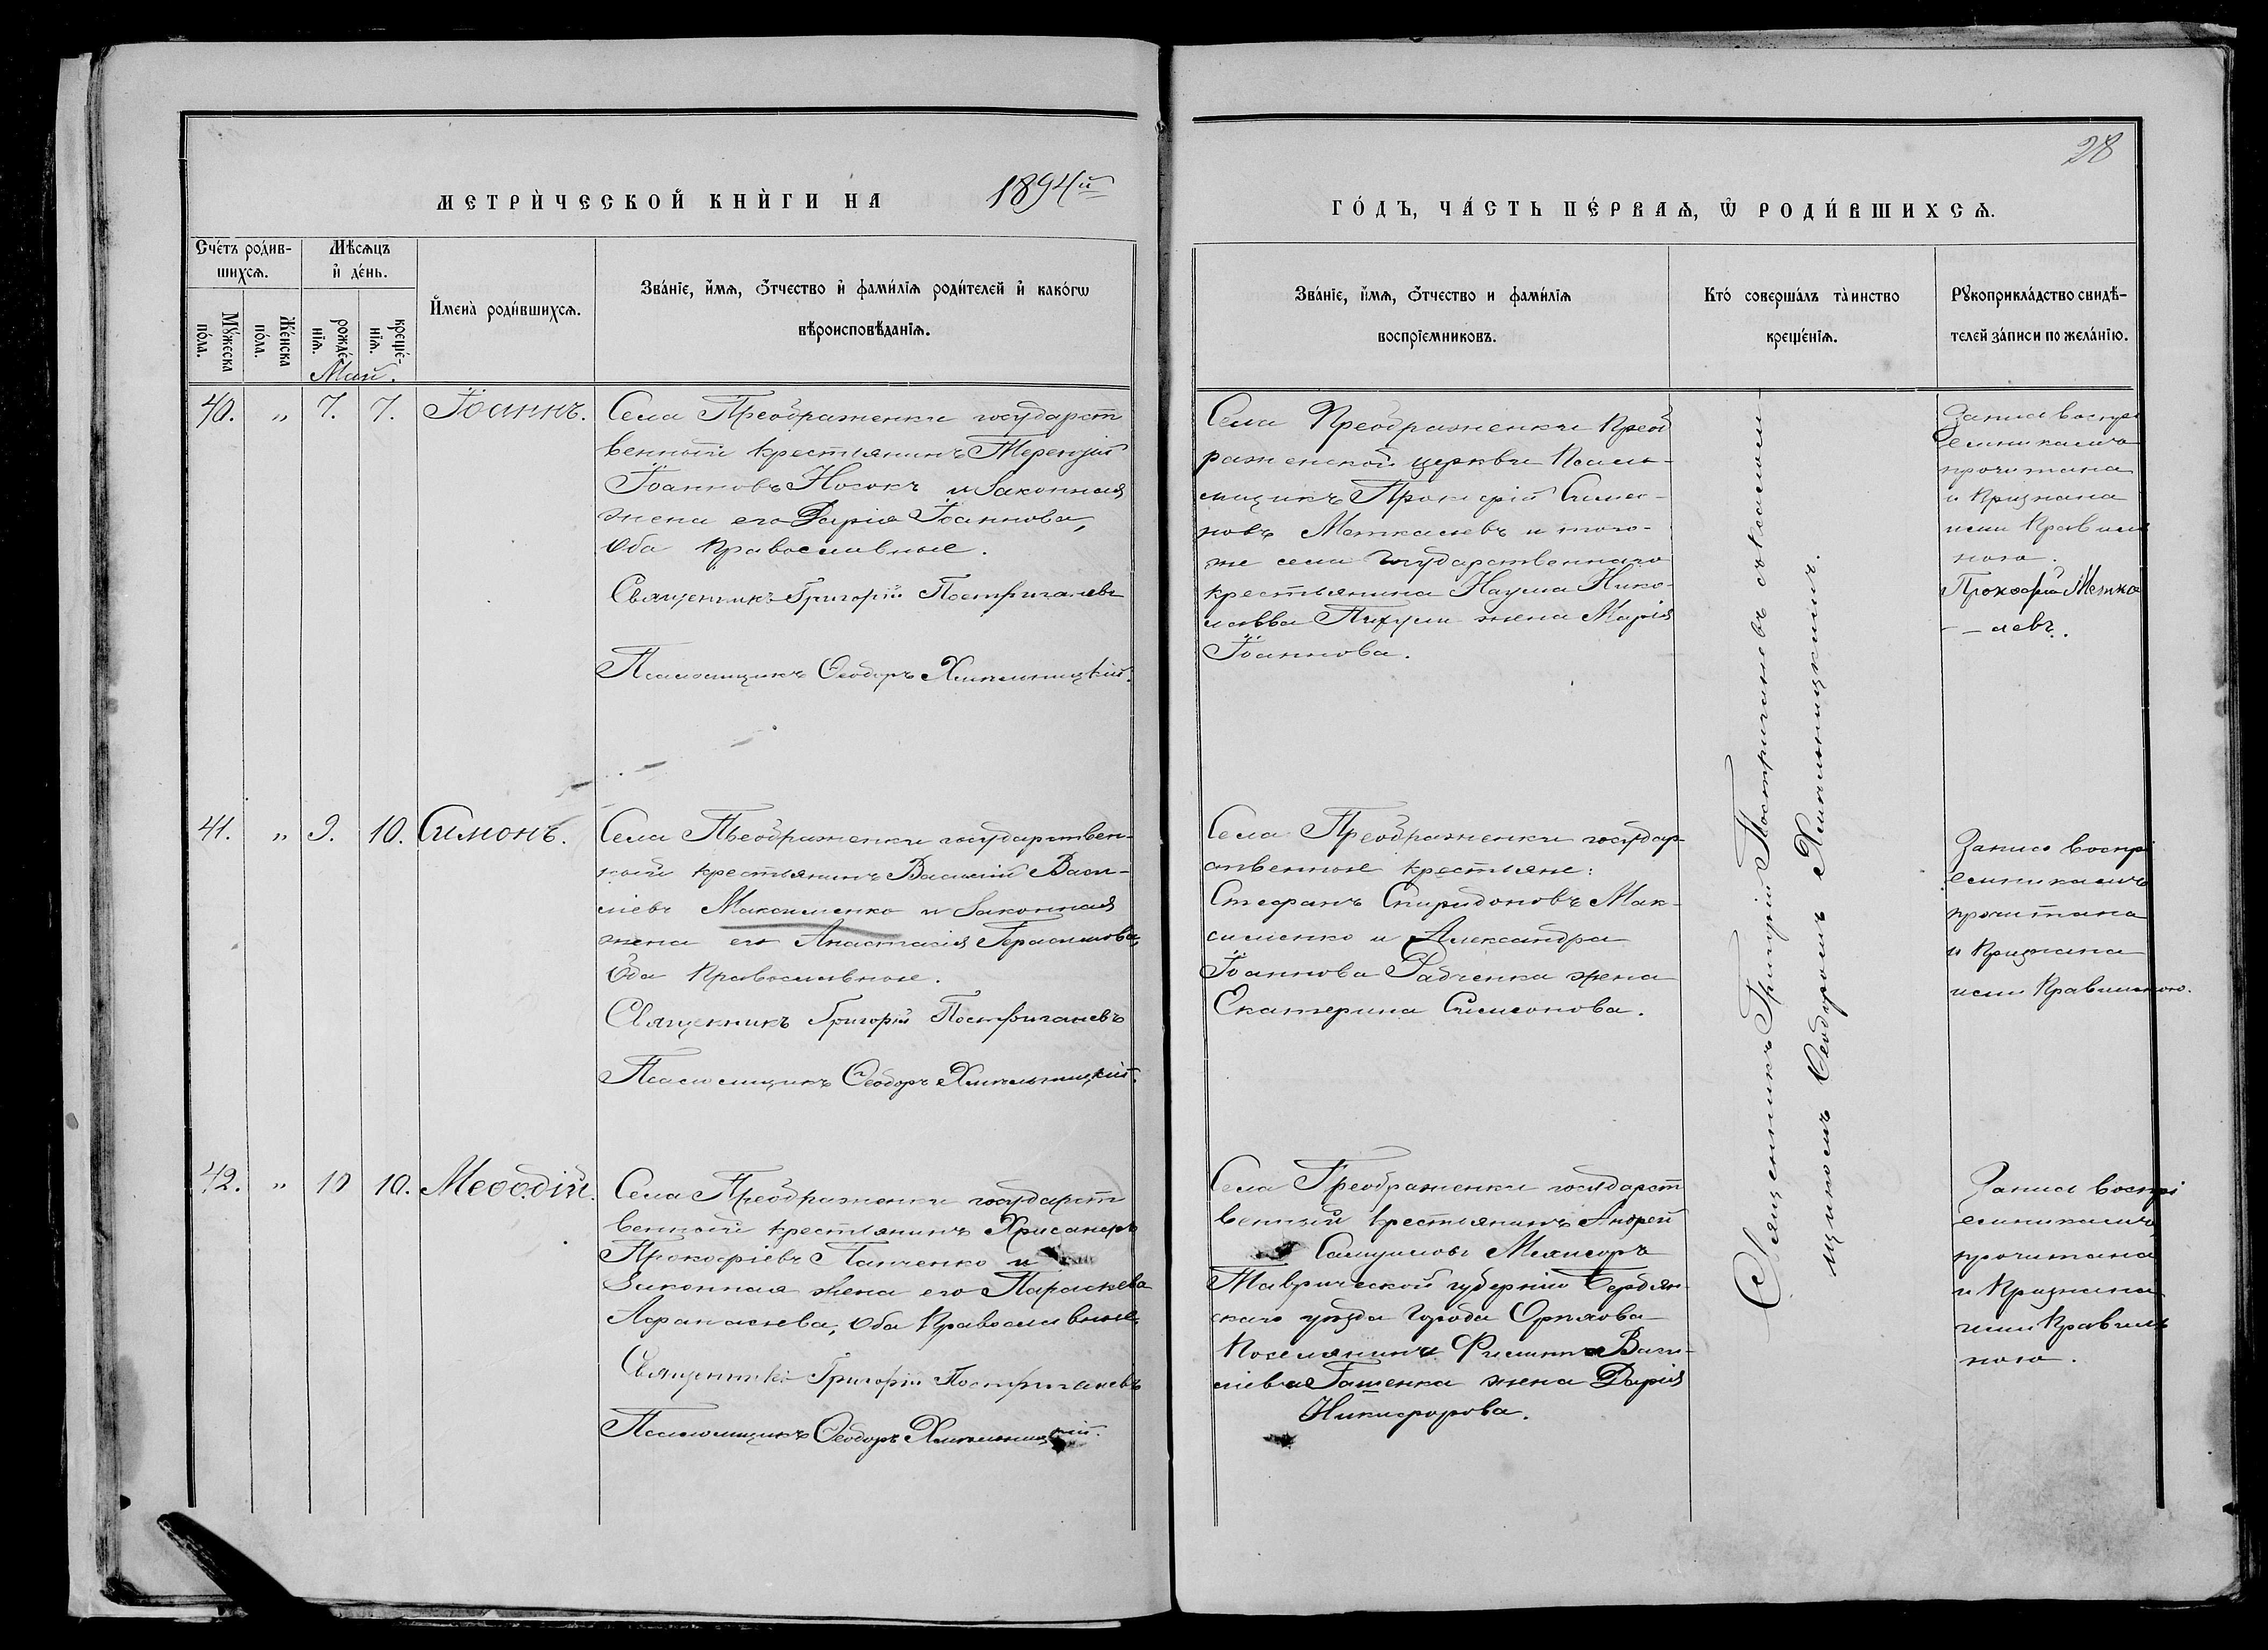 28
МЕТРИ́ЧЕСКОЙ КНИ́ГИ НА 1894й
ГО́ДЪ, ЧА́СТЬ ПЕ́РВАѦ, Ѡ РОДИ́ВШИХСѦ.
Сче́тъ роди́в-
шихсѧ.
Мꙋ́жеска
по́ла.
Же́нска
по́ла.
Мѣ́сѧцъ
и҆ де́нь.
рожде́-
нїѧ.
креще́-
нїѧ.
Май.
И҆мена̀ роди́вшихсѧ.
Зва́нїе, и҆́мѧ, ѻ҆́тчество и҆ фами́лїѧ роди́телей и҆ како́гѡ
вѣроисповѣ́данїѧ.
Зва́нїе, и҆́мѧ, ѻ҆́тчество и фами́лїѧ
воспрїе́мниковъ.
Кто́ соверша́лъ та̀инство
креще́нїѧ.
Рꙋкоприкла́дство свидѣ́-
телей за́писи по жела́нїю.
40. " 7. 7. Іоаннъ.
Села Преображенки государст
венный крестьянинъ Терентій
Іоанновъ Носокъ и законная
жена его Дарія Іоаннова,
оба православные.
Священникъ Григорій Постригачевъ
Псаломщикъ Ѳеодоръ Хмельницкій.
Села Преображенки Преоб
раженской церкви Псало-
мщикъ Прокофій Симео-
новъ Меткалевъ и того-
же села государственнаго
крестьянина Наума Нико-
лаева жена Марія
Іоаннова.
Запись воспрі
емниками
прочитана
и признана
ими правиль
ною.
Прокофій Метка
- - левъ.
41. " 9. 10. Симонъ.
Села Преображенки государствен-
ный крестьянинъ Василій Васи-
ліевъ Максименко и законная
жена его Анастасія Герасимова,
Оба православные.
Священникъ Григорій Постригачевъ
Псаломщикъ Ѳеодоръ Хмельницкій.
Села Преображенки государ-
ственные крестьяне:
Стефанъ Спиридоновъ Мак-
сименко и Александра
Іоаннова Рабченка жена
Екатерина Симеонова.
Запись воспрі
емниками
прочитана
и признана
ими правильною.
42. " 10 10. Меѳодій.
Села Преображенки государст
венный крестьянинъ Хрисанфъ
Прокофіевъ Панченко и
законная жена его Параскева
Афанасіева, оба православные.
Священникъ Григорій Постригачевъ
Псаломщикъ Ѳеодоръ Хмельницкій.
Села Преображенки государст
венный крестьянинъ Андрей
Самуиловъ
Таврической губерніи Бердян-
скаго уѣзда города Орѣхова
поселянина Филиппа Васи-
ліева жена Дарія
Никифорова.
Запись воспрі
емниками
прочитана
и признана
ими правиль
ною.
Священникъ Григорій Постригачевъ съ псалом-
щикомъ Ѳеодоромъ Хмельницкимъ.